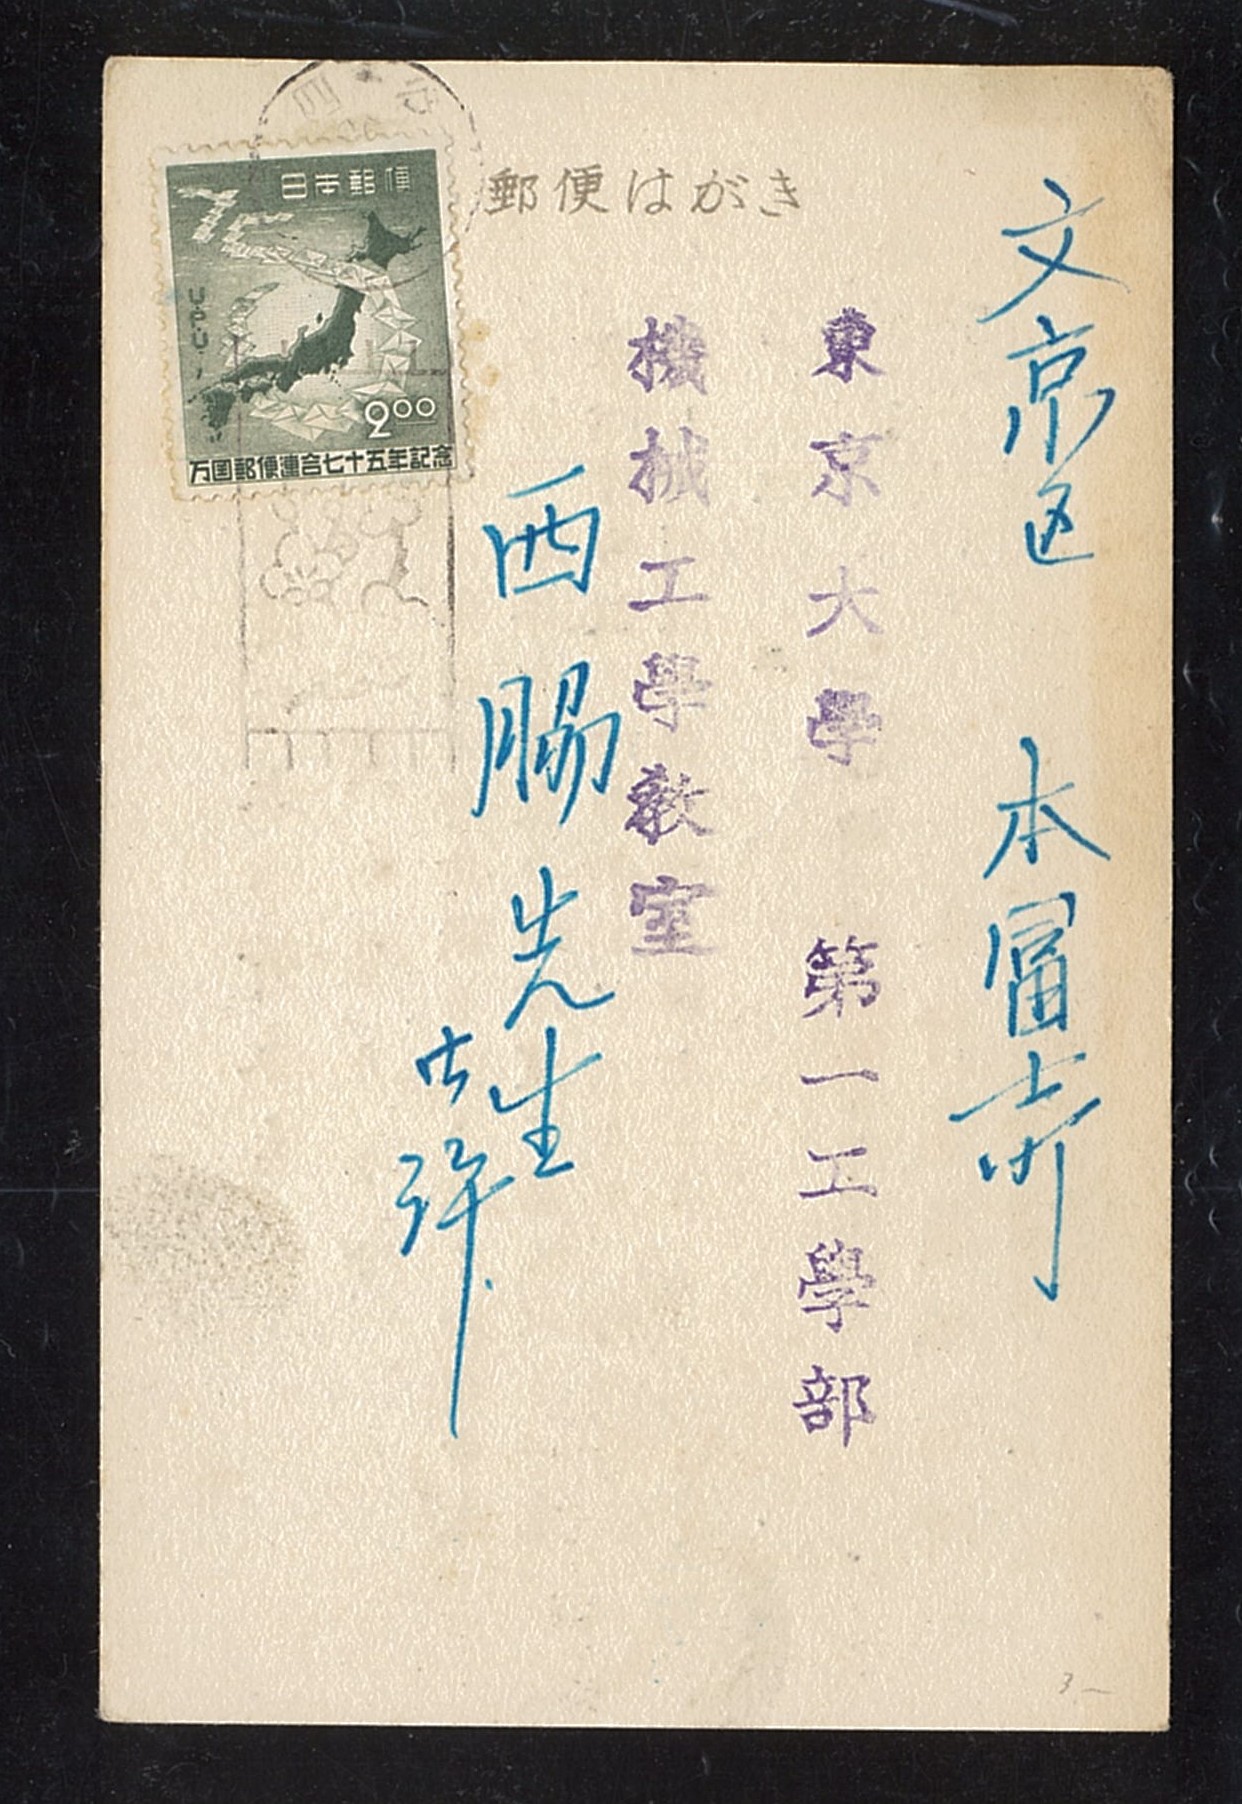 日本郵便
75
U.P.U.
200
万国郵便連合七十五年記念
郵便はがき
文京区 本冨士町
東京大學 第一工學部
機械工學教室
西脇先生